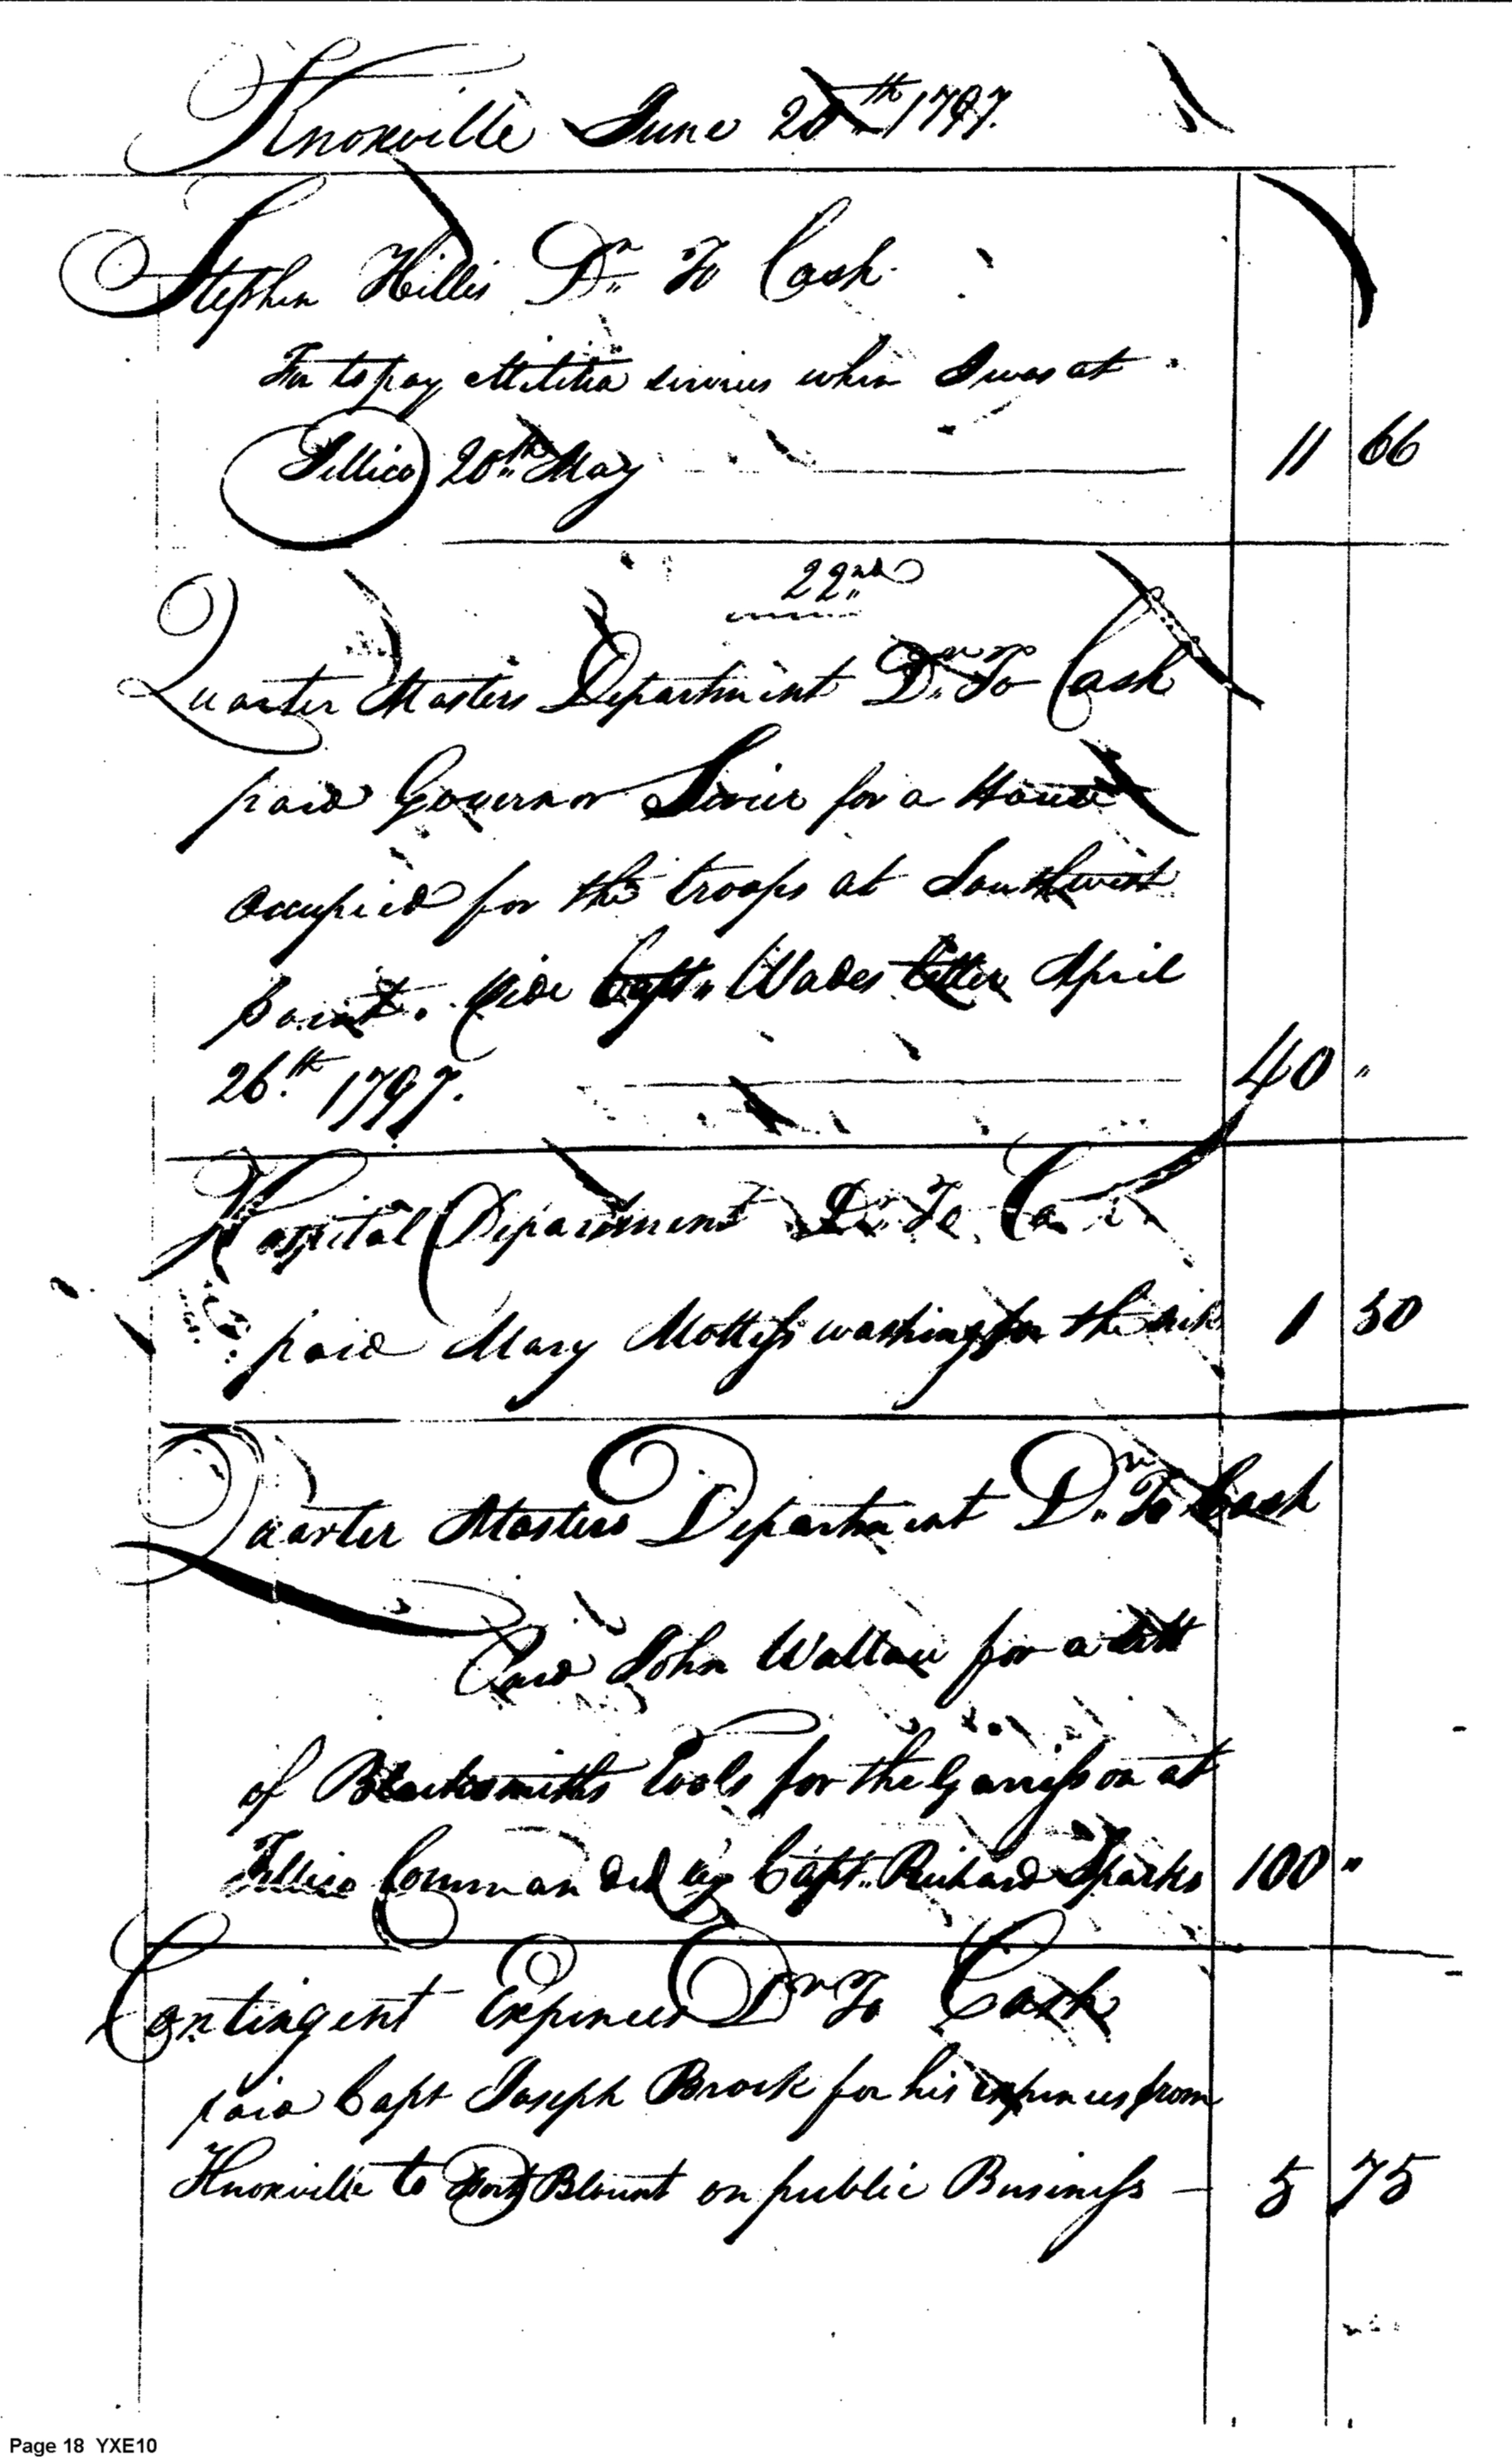 Knoxville June 20th 1797.
Stephen Hillis Dr. To Cash
For to pay Militia services when I was at
Tellico 20th May 11 66
22nd
Quarter Masters Department Dr. To Cash
paid Governor Sevier for a House
occupied for the troops at Southwest
point. Vide Capt. Wades letter April
26th 1797. 40 "
Hospital Department Dr. To Cash
paid Mary washing for the sick 1 50
Quarter Masters Department Dr. To Cash
Paid John Wallace for a sett
of Blacksmiths tools for the Garrisson at
Tellico Commanded by Capt. Richard Sparks 100 "
Contingent Expences Dr To Cash
paid Capt Joseph Brock for his expences from
Knoxville to Fort Blount on public Business 5 75
Page 18 YXE10